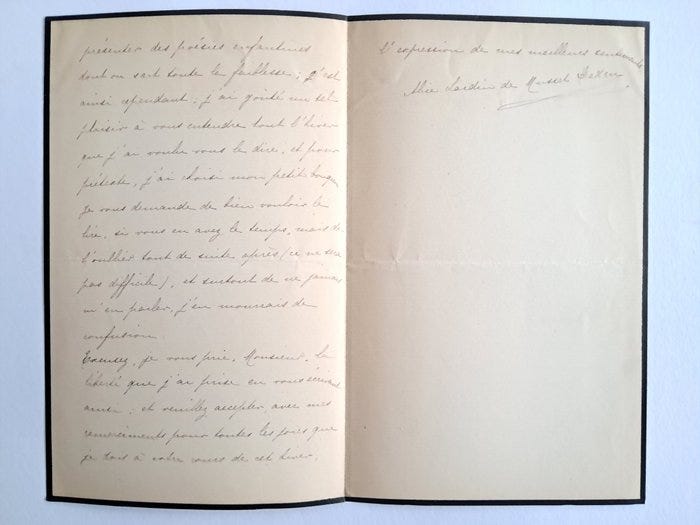 présenter des poésies enfantines
dont on sait toute la faiblesse ; c'est
ainsi cependant ; j'ai goûté un tel
plaisir à vous entendre tout l'hiver
que j'ai voulu vous le dire, et pour
prétexte, j'ai choisi mon petit bouquin
Je vous demande de bien vouloir le
lire, si vous en avez le temps, mais de
l'oublier tout de suite après (ce ne sera
pas difficile), et surtout de ne jamais
m'en parler, j'en mourrais de
confusion.
Excusez, je vous prie, Monsieur, la
liberté que j'ai prise en vous écrivant
ainsi ; et veuillez accepter, avec mes
remerciements pour toutes les joies que
je dois à votre cours de cet hiver,
l'expression de mes meilleurs sentiments
Alice Lardin de Musset